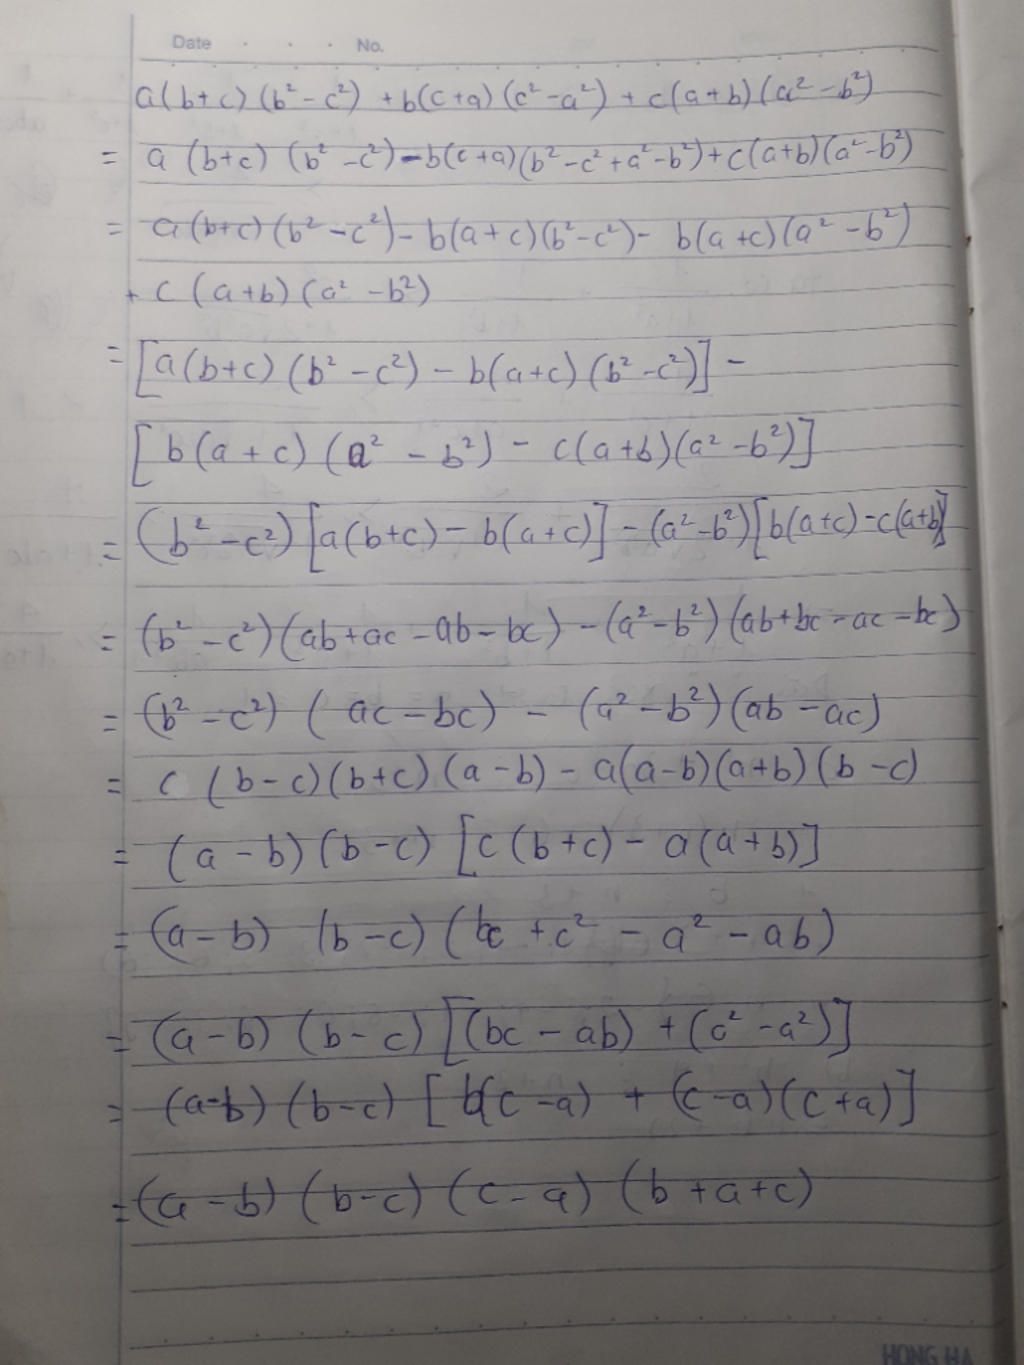 Date . . . No.
a(b+c)(b²-c²) + b(c+a)(c²-a²) + c(a+b)(a²-b²)
= a (b+c) (b²-c²) - b(c+a)(b²-c²+a²-b²) + c(a+b)(a²-b²)
= a(b+c)(b²-c²) - b(a+c)(b²-c²) - b(a+c)(a²-b²)
+ c(a+b)(a²-b²)
= [a(b+c)(b²-c²) - b(a+c)(b²-c²)] -
[b(a+c)(a²-b²) - c(a+b)(a²-b²)]
= (b²-c²)[a(b+c) - b(a+c)] - (a²-b²)[b(a+c) - c(a+b)]
= (b²-c²)(ab+ac-ab-bc) - (a²-b²)(ab+bc-ac-bc)
= (b²-c²)(ac-bc) - (a²-b²)(ab-ac)
= c(b-c)(b+c)(a-b) - a(a-b)(a+b)(b-c)
= (a-b)(b-c)[c(b+c) - a(a+b)]
= (a-b)(b-c)(bc+c²-a²-ab)
= (a-b)(b-c)[(bc-ab)+(c²-a²)]
= (a-b)(b-c)[b(c-a)+(c-a)(c+a)]
= (a-b)(b-c)(c-a)(b+a+c)
HONG HA